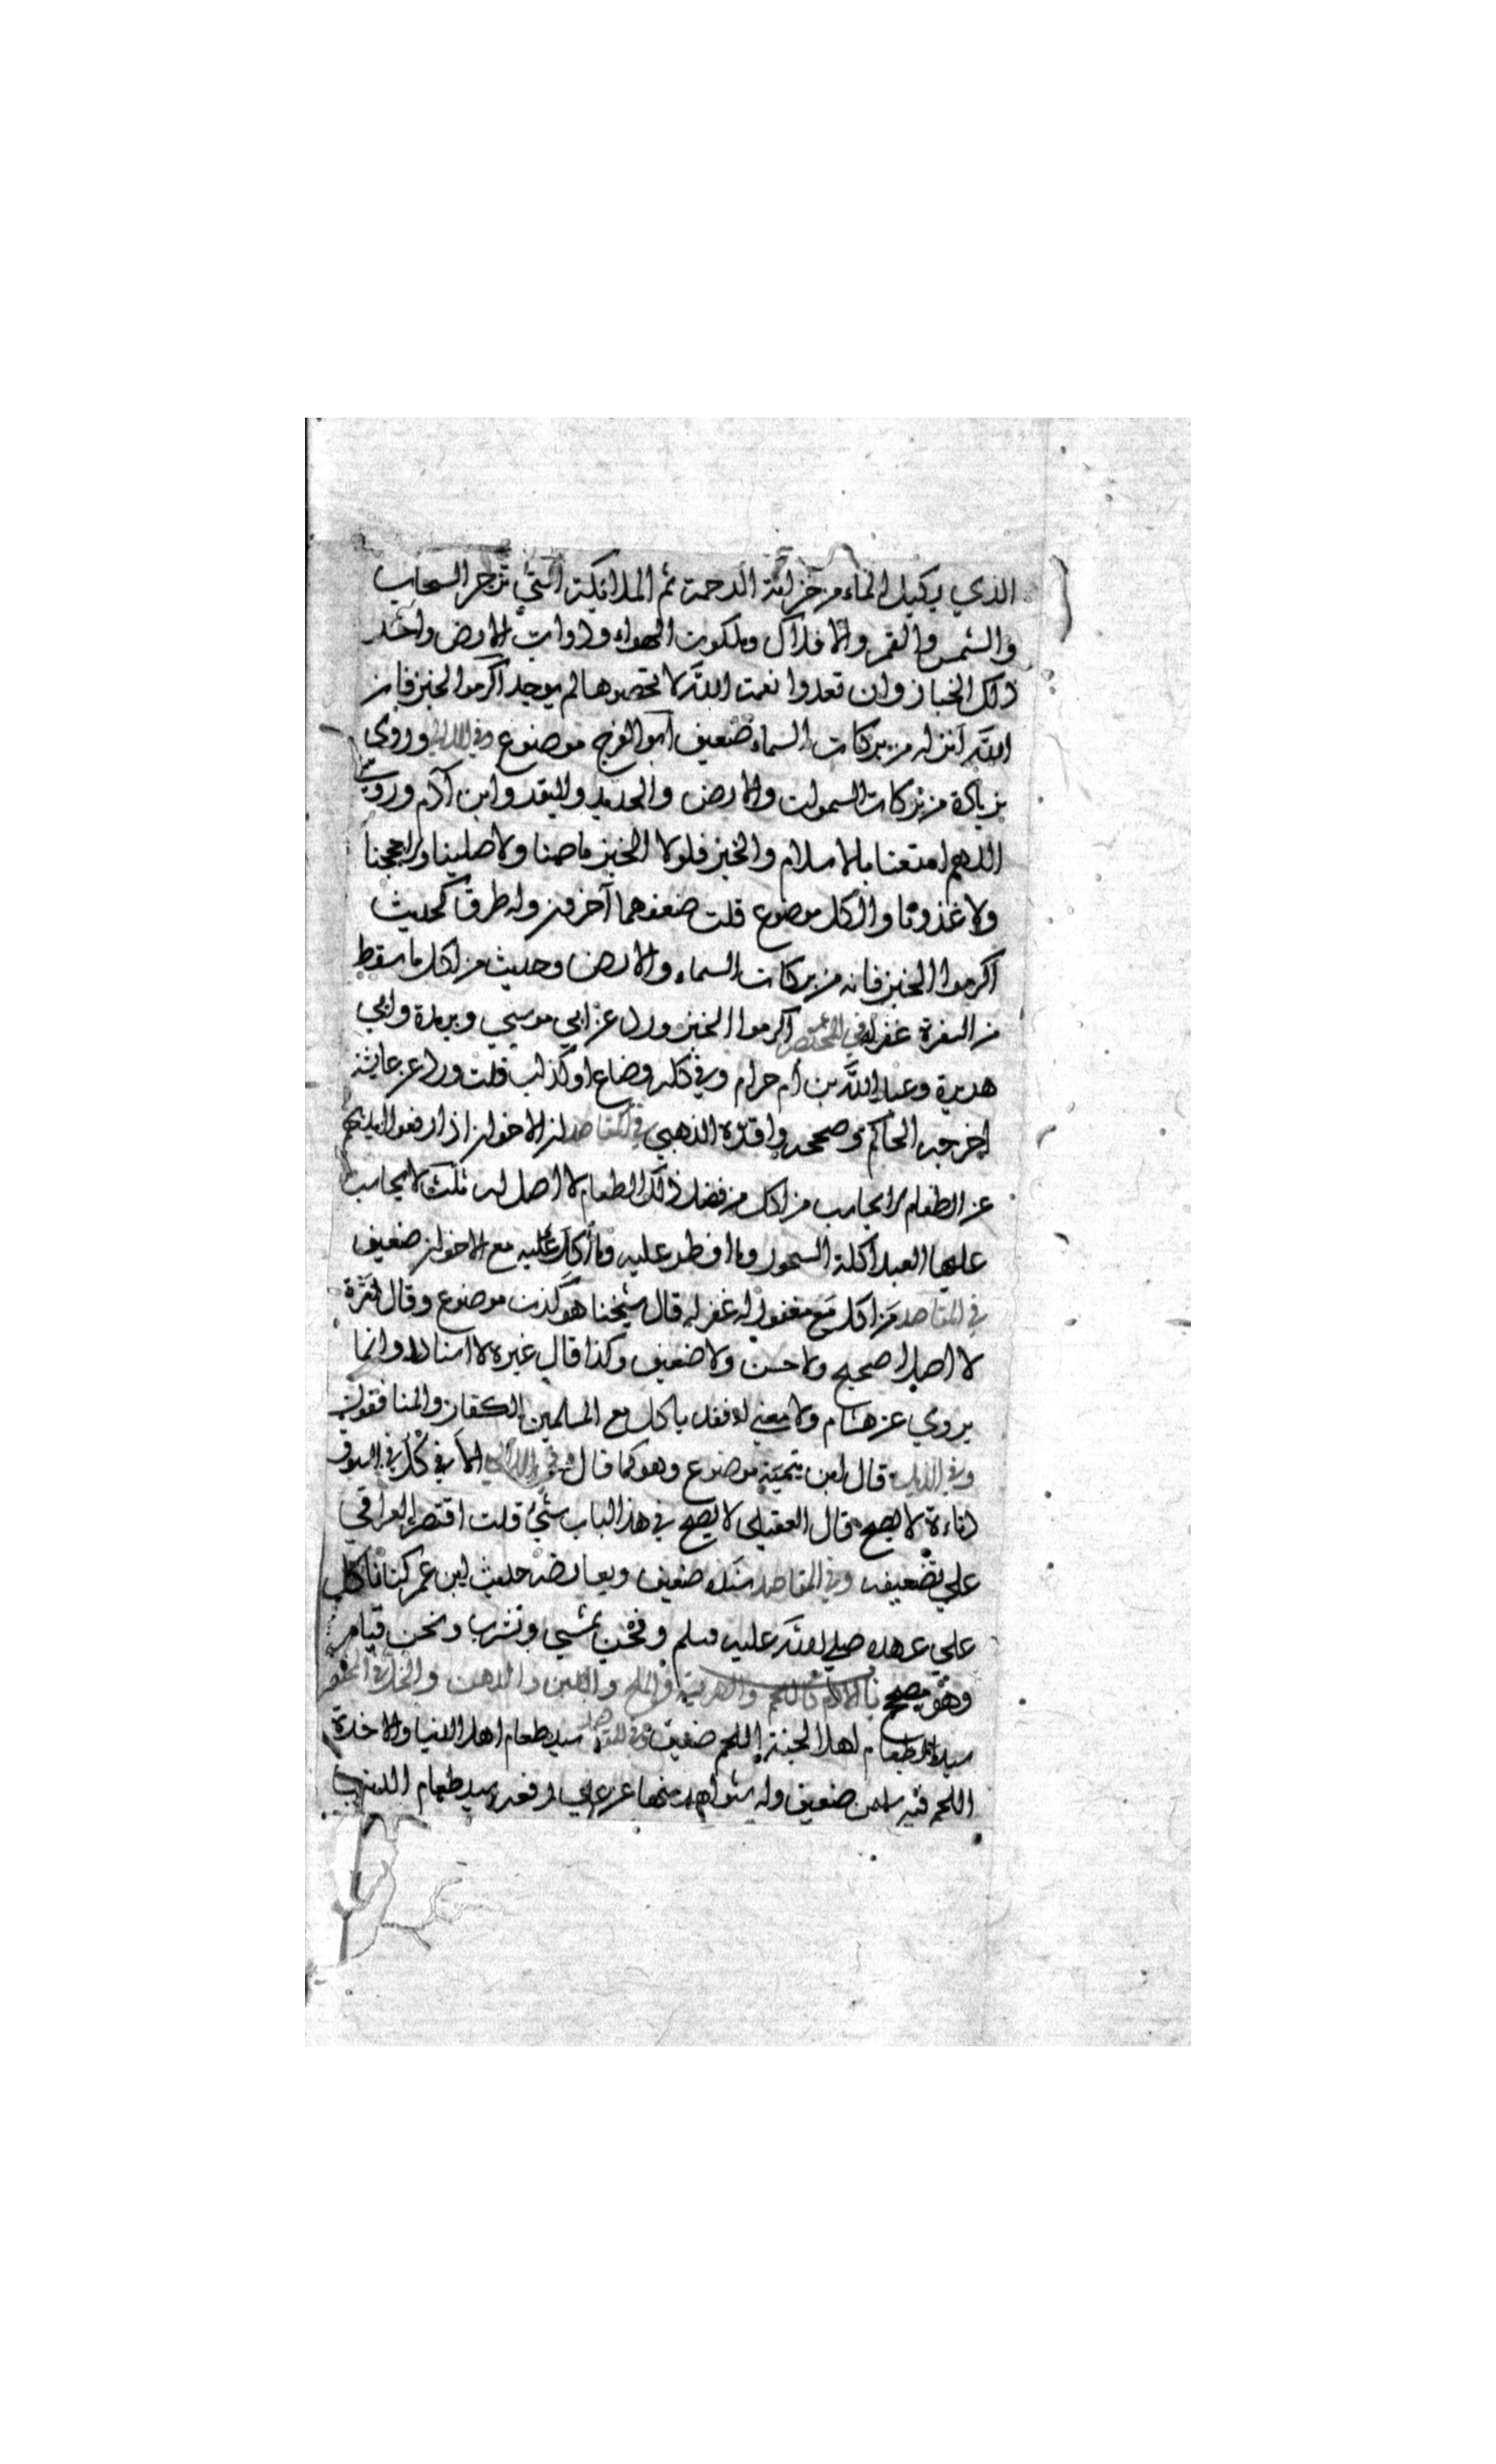 الذي يكيل الماء من خزائنة الرحمة ثم الملائكة التي تزجر السحاب
والشمس والقمر والافلاك وملكوت الهواء ودوابّ الارض واخر
ذلك الخباز وان تعدوا نعمت الله لا تحصوها لم يوجد اكرموا الخبز فان
الله انزله من بركات السماء ضعيف ابو الفرج موضوع وفي اللالي وروى
بزيادة من بركات السموات والارض والحديد والبقر وابن آدم وروى
اللهم امتعنا بالاسلام والخبز فلولا الخبز ما صمنا ولا صلينا ولا حججنا
ولا غذونا والكل موضوع قلت ضعفهما آخرون وله طرق كحديث
اكرموا الخبز فانه من بركات السماء والارض وحديث من اكل ما سقط
من السفرة غفر له في المختصر اكرموا الخبز ورد عن ابي موسي وبريدة وابي
هريرة وعبد الله بن أم حرام وفي كله وضاع او كذاب قلت ورد عن عايشة
اخرجه الحاكم وصححه واقره الذهبي في المقاصد ان الاخوان اذا رفعوا ايديهم
عن الطعام لا يحاسب من اكل من فضل ذلك الطعام لا اصل له ثلث لا يحاسب
عليها العبد اكلة السحور وما افطر عليه وما أكل عليه مع الاخوان ضعيف
في المقاصد من اكل مع مغفور له غفر له قال شيخنا هو كذب موضوع وقال مرة
لا اصل له صحيح ولا حسن ولا ضعيف وكذا قال غيره لا اسناد له وانما
يروي عن هشام ولا معني له فقد ياكل مع المسلمين الكفار والمنافقون
وفي الذيل قال ابن تيمية موضوع وهو كما قال وفي اللالي الاكل في السوق
دناءة لا يصح قال العقيلي لا يصح في هذا الباب شيئ قلت اقتصر العراقي
علي تضعيفه وفي المقاصد سنده ضعيف ويعارضه حديث ابن عمر كنا ناكل
علي عهده صلي الله عليه وسلم ونحن نمشي ونشرب ونحن قيام
وهو صحيح باب الادام كاللحم والهريسة والملح واللبن والدهن والخل
سيد الطعام لاهل الجنة اللحم ضعيف وفي المقاصد سيد طعام اهل الدنيا والاخرة
اللحم فيه ضعيف وله شواهد منها عن علي رفعه سيد طعام الدنيا